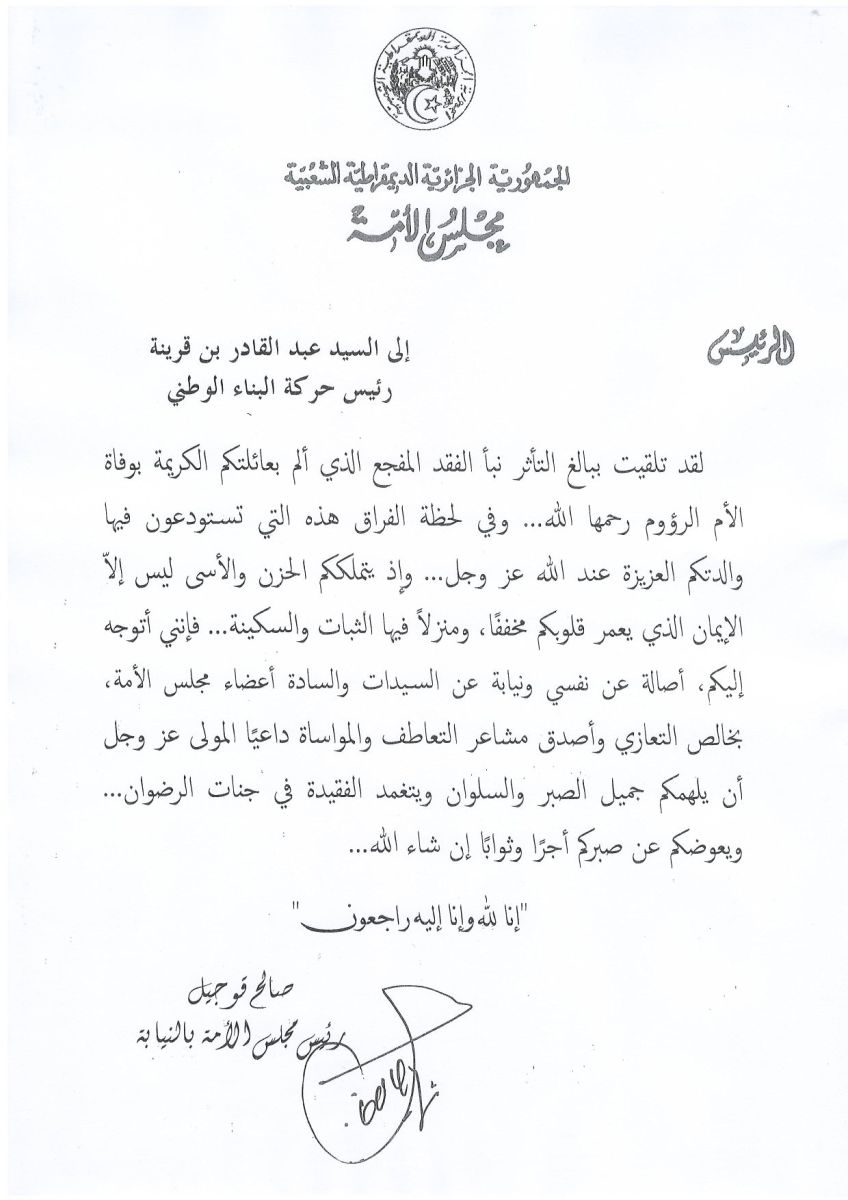 الجمهورية الجزائرية الديمقراطية الشعبية
مجلس الأمة
الرئيس
إلى السيد عبد القادر بن قرينة
رئيس حركة البناء الوطني
لقد تلقيت ببالغ التأثر نبأ الفقد المفجع الذي ألم بعائلتكم الكريمة بوفاة
الأم الرؤوم رحمها الله... وفي لحظة الفراق هذه التي تستودعون فيها
والدتكم العزيزة عند الله عز وجل... وإذ يتملككم الحزن والأسى ليس إلاّ
الإيمان الذي يعمر قلوبكم مخففًا، ومنزلاً فيها الثبات والسكينة... فإنني أتوجه
إليكم، أصالة عن نفسي ونيابة عن السيدات والسادة أعضاء مجلس الأمة،
بخالص التعازي وأصدق مشاعر التعاطف والمواساة داعيًا المولى عز وجل
أن يلهمكم جميل الصبر والسلوان ويتغمد الفقيدة في جنات الرضوان...
ويعوضكم عن صبركم أجرًا وثوابًا إن شاء الله...
"إنا لله وإنا إليه راجعون"
صالح قوجيل
رئيس مجلس الأمة بالنيابة